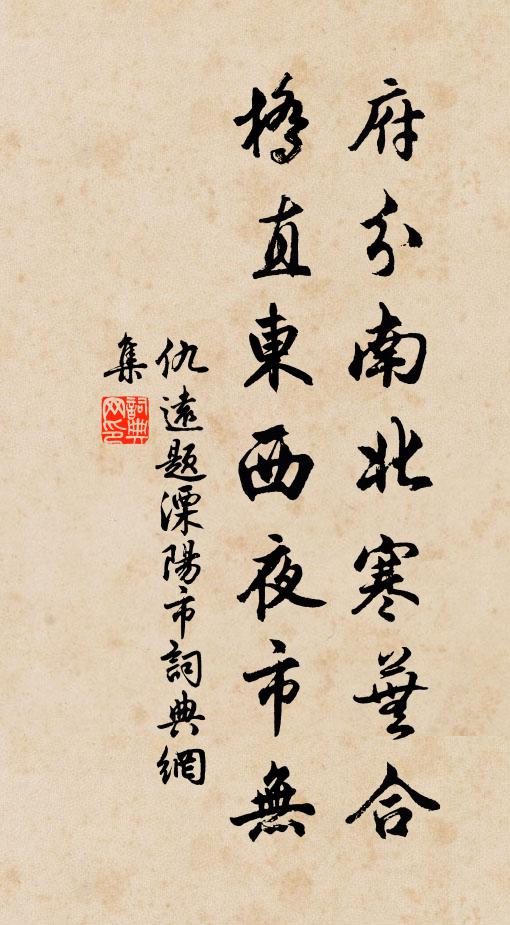 府分南北寒蕪合
橋直東西夜市無
仇遠題溧陽市詞典網
集
詞典
网印